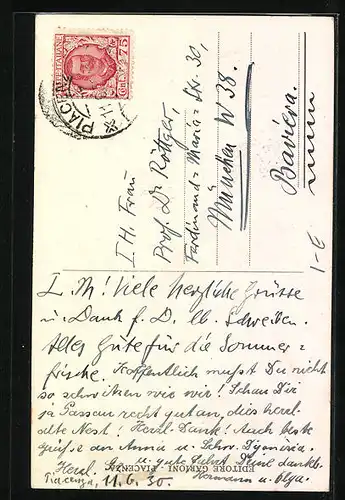 PIACENZA
POSTE ITALIANE
Cent. 75
I. H. Frau
Prof. Dr. Röttger,
Ferdinand=Maria=Str. 30,
München W 38.
Baviera.
I-E
L. M! Viele herzliche Grüsse
u. Dank f. D. lb. Schreiben.
Alles Gute für die Sommer=
frische. Hoffentlich musst Du nicht
so schwitzen wie wir! Schau Dir
ja Passau recht gut an, dies herrl.
alte Nest! Herzl. Dank! Auch beste
Grüsse an Anna u. Schw.
Herzl. Gr. u. K. dankb.
Hermann u. Olga.
Piacenza, 11.6.30.
EDITORE GARBONI - PIACENZA